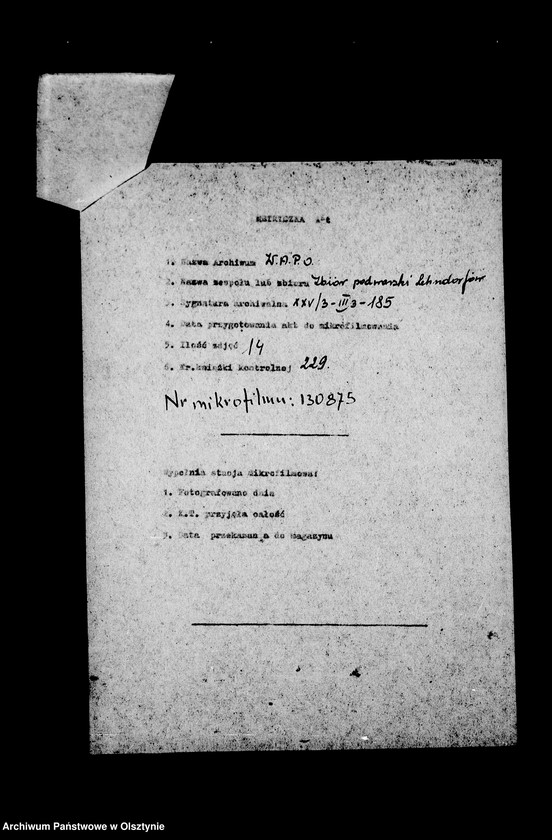 METRYCZKA Akt
1. Nazwa Archiwum W.A.P.O.
2. Nazwa zespołu lub zbioru Zbiór podworski Lehndorfów
3. Sygnatura archiwalna XXV/3-III3-185
4. Data przygotowania akt do mikrofilmowania
5. Ilość zdjęć 14
6. Nr.książki kontrolnej 229.
Nr mikrofilmu: 130875
Wypełnia stacja mikrofilmowa:
1. Fotografowano dnia
2. K.T. przyjęła całość
3. Data przekazania do magazynu
Archiwum Państwowe w Olsztynie